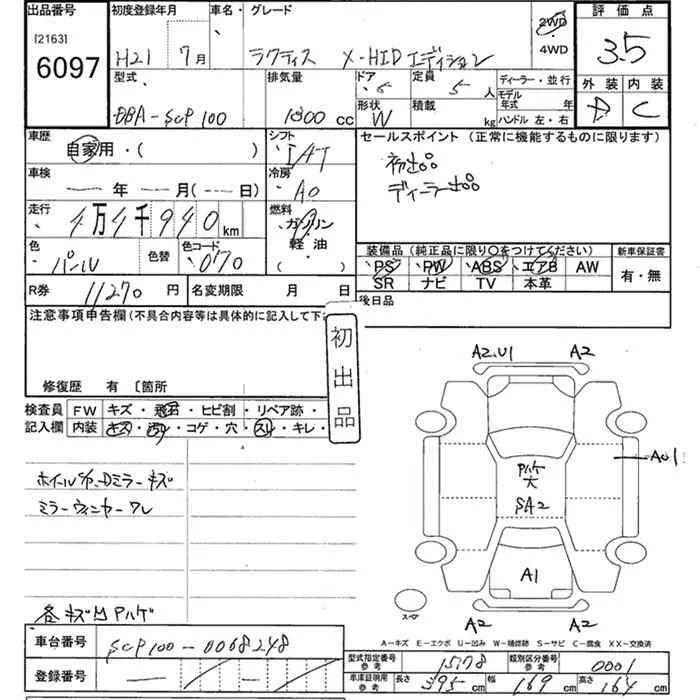 出品番号 初度登録年月 車名・グレード 評価点
[2163] 2WD
6097 H21 7月 ラクティス X-HIDエディション 4WD 3.5
型式 排気量 ドア 定員 ディーラー・並行 外装 内装
DBA-SCP100 1300 cc 5 5人 モデル年式 年 D C
形状 W 積載 kg ハンドル 左・右
車歴 シフト セールスポイント (正常に機能するものに限ります)
自家用・( ) IAT 初出品
車検 冷房 ディーラー出品
年 月 ( 日) AC
走行 燃料
4万4千940km ガソリン
色 色替 色コード 軽油 装備品 (純正品に限り○をつけてください) 新車保証書
パール 070 ・( ) PS PW ABS エアB AW 有・無
SR ナビ TV 本革
R券 11270円 名変期限 月 日 後日品
注意事項申告欄(不具合内容等は具体的に記入して下
初出品
修復歴 有 〔箇所
検査員 FW キズ・飛石・ヒビ割・リペア跡・
記入欄 内装 キズ・汚レ・コゲ・穴・スレ・キレ・
A2.U1 A2
ミラーウィンカーワレ
A1
A2 A2
スペア
A-キズ E-エクボ U-凹み W-補修跡 S-サビ C-腐食 XX-交換済
車台番号 SCP100-0068248
登録番号
型式指定番号 参考 15778 類別区分番号 参考 0001
車庫証明用 参考 長さ 395cm 幅 169cm 高さ 164cm